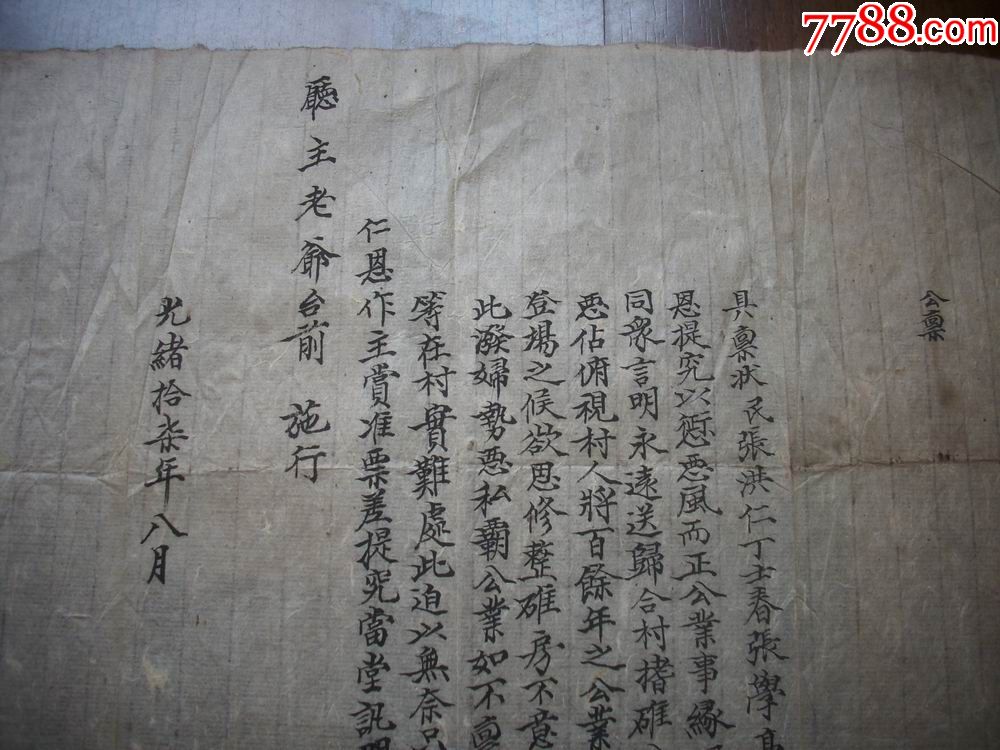 7788.com
公稟
具稟狀民張洪仁丁士春張學
恩提究以懲惡風而正公業事緣
同衆言明永遠送歸合村揩碓
惡佔俯視村人將百餘年之公業
登場之候欲思修整碓房不意
此潑婦勢惡私霸公業如不稟
等在村實難處此迫以無奈只
仁恩作主賞准票差提究當堂訊
廳主老爺台前 施行
光緒拾柒年八月